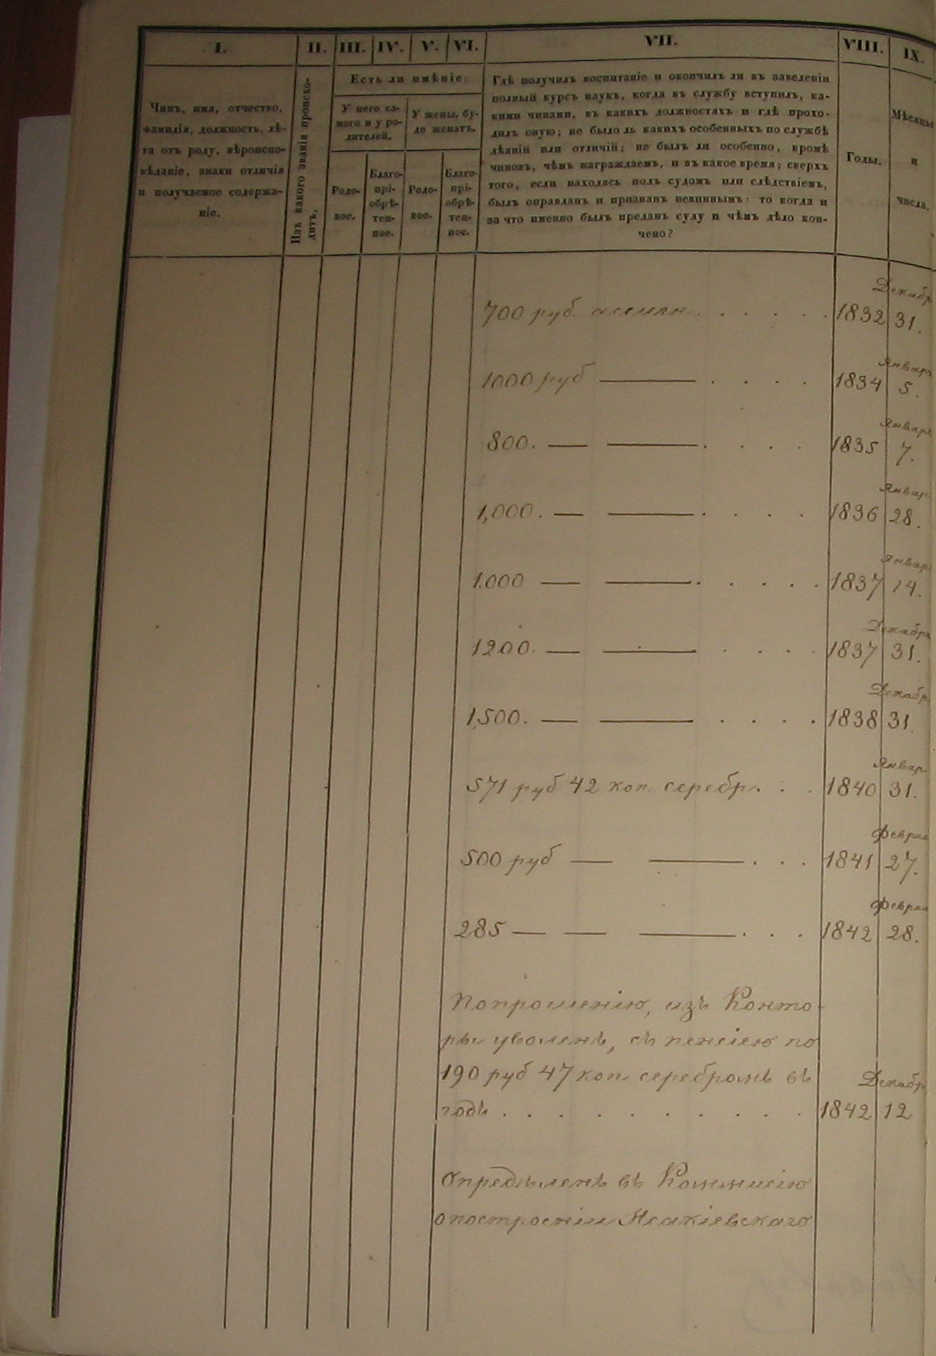 I. II. III. IV. V. VI. VII. VIII. IX.
Чинъ, имя, отчество,
фамилія, должность, лѣ-
та отъ роду, вѣроиспо-
вѣданіе, знаки отличія
и получаемое содержа-
ніе.
Изъ какого званія происхо-
дитъ.
Есть ли имѣніе
У него са-
маго и у ро-
дителей.
У жены, бу-
де женатъ.
Родо-
вое.
Благо-
прі-
обрѣ-
тен-
ное.
Родо-
вое.
Благо-
прі-
обрѣ-
тен-
ное.
Гдѣ получилъ воспитаніе и окончилъ ли въ заведеніи
полный курсъ наукъ, когда въ службу вступилъ, ка-
кими чинами, въ какихъ должностяхъ и гдѣ прохо-
дилъ оную; не было ль какихъ особенныхъ по службѣ
дѣяній или отличій; не былъ ли особенно, кромѣ
чиновъ, чѣмъ награждаемъ, и въ какое время; сверхъ
того, если находясь подъ судомъ или слѣдствіемъ,
былъ оправданъ и признанъ невиннымъ: то когда и
за что именно былъ преданъ суду и чѣмъ дѣло кон-
чено?
Годы.
Мѣсяцы
и
числа.
700 руб. ассигн. . . . . . 1832 Декабр 31.
1000 руб — . . . . 1834 Январ 5.
800. — — . . . . 1835 Январ 7.
1,000. — — . . . . 1836 Январ 28.
1000 — — . . . . . 1837 Январ 14.
1200. — — . . . . 1837 Декабр 31.
1,500. — — . . . . 1838 Декабр 31.
571 руб 42 коп. серебр. . . 1840 Январ 31.
500 руб — — . . . 1841 Феврал 27.
285 — — — . . . 1842 Феврал 28.
По прошенію, изъ Конто-
ры уволенъ, съ пенсіею по
190 руб 47 коп. серебромъ въ
годъ . . . . . . . . . 1842 Декабр 12
Опредѣленъ въ Коммисію
о построеніи Исакіевскаго